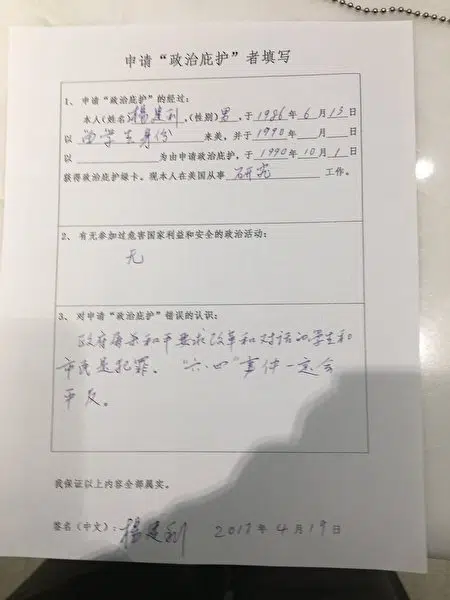 申请“政治庇护”者填写
1、申请“政治庇护”的经过：
本人(姓名)楊建利,(性别)男,于1986年6月13日
以留学生身份来美，并于1990年 月 日
以 为由申请政治庇护，于1990年10月1日
获得政治庇护绿卡。现本人在美国从事研究工作。
2、有无参加过危害国家利益和安全的政治活动：
无
3、对申请“政治庇护”错误的认识：
政府屠杀和平要求改革和对话的学生和
市民是犯罪。“六.四”事件一定会
平反。
我保证以上内容全部属实。
签名(中文)：楊建利 2017年4月19日